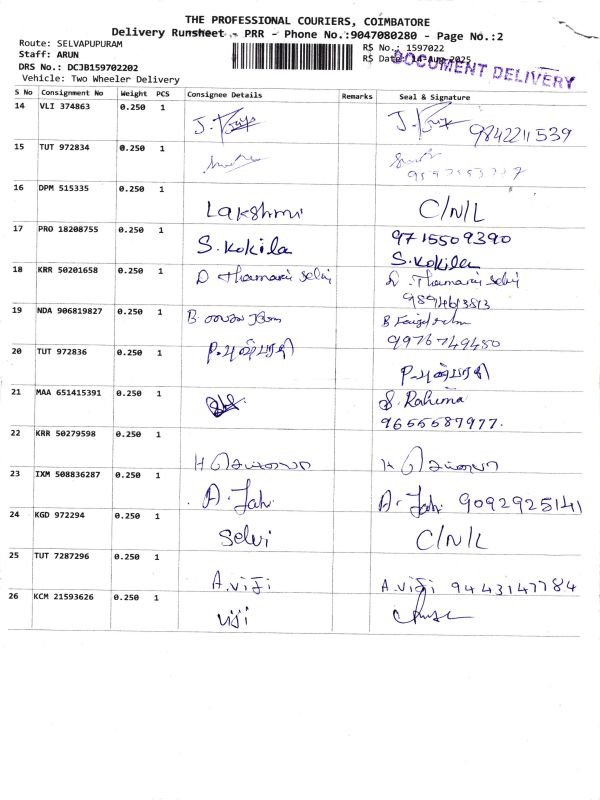 THE PROFESSIONAL COURIERS, COIMBATORE
Delivery Runsheet - PRR - Phone No.:9047080280 - Page No.:2
Route: SELVAPUPURAM
RS No.: 1597022
Staff: ARUN
RS Date: 14-Aug-2025
DOCUMENT DELIVERY
DRS No.: DCJB159702202
Vehicle: Two Wheeler Delivery
S No Consignment No Weight PCS Consignee Details Remarks Seal & Signature
14 VLI 374863 0.250 1
9842211539
15 TUT 972834 0.250 1
16 DPM 515335 0.250 1
Lakshmi C/N/L
17 PRO 18208755 0.250 1 9715509390
S. Kokila S. Kokila
18 KRR 50201658 0.250 1 D Thamarai Selvi D. Thamarai Selvi
9894613513
19 NDA 906819827 0.250 1 B.
B
9976749450
20 TUT 972836 0.250 1
P. P.
21 MAA 651415391 0.250 1 S. Rahima
9655587977.
22 KRR 50279598 0.250 1
H H
23 IXM 508836287 0.250 1
A. A. 9092925141
24 KGD 972294 0.250 1
Selvi C/N/L
25 TUT 7287296 0.250 1
A. Viji A. Viji 9443147784
26 KCM 21593626 0.250 1
Viji